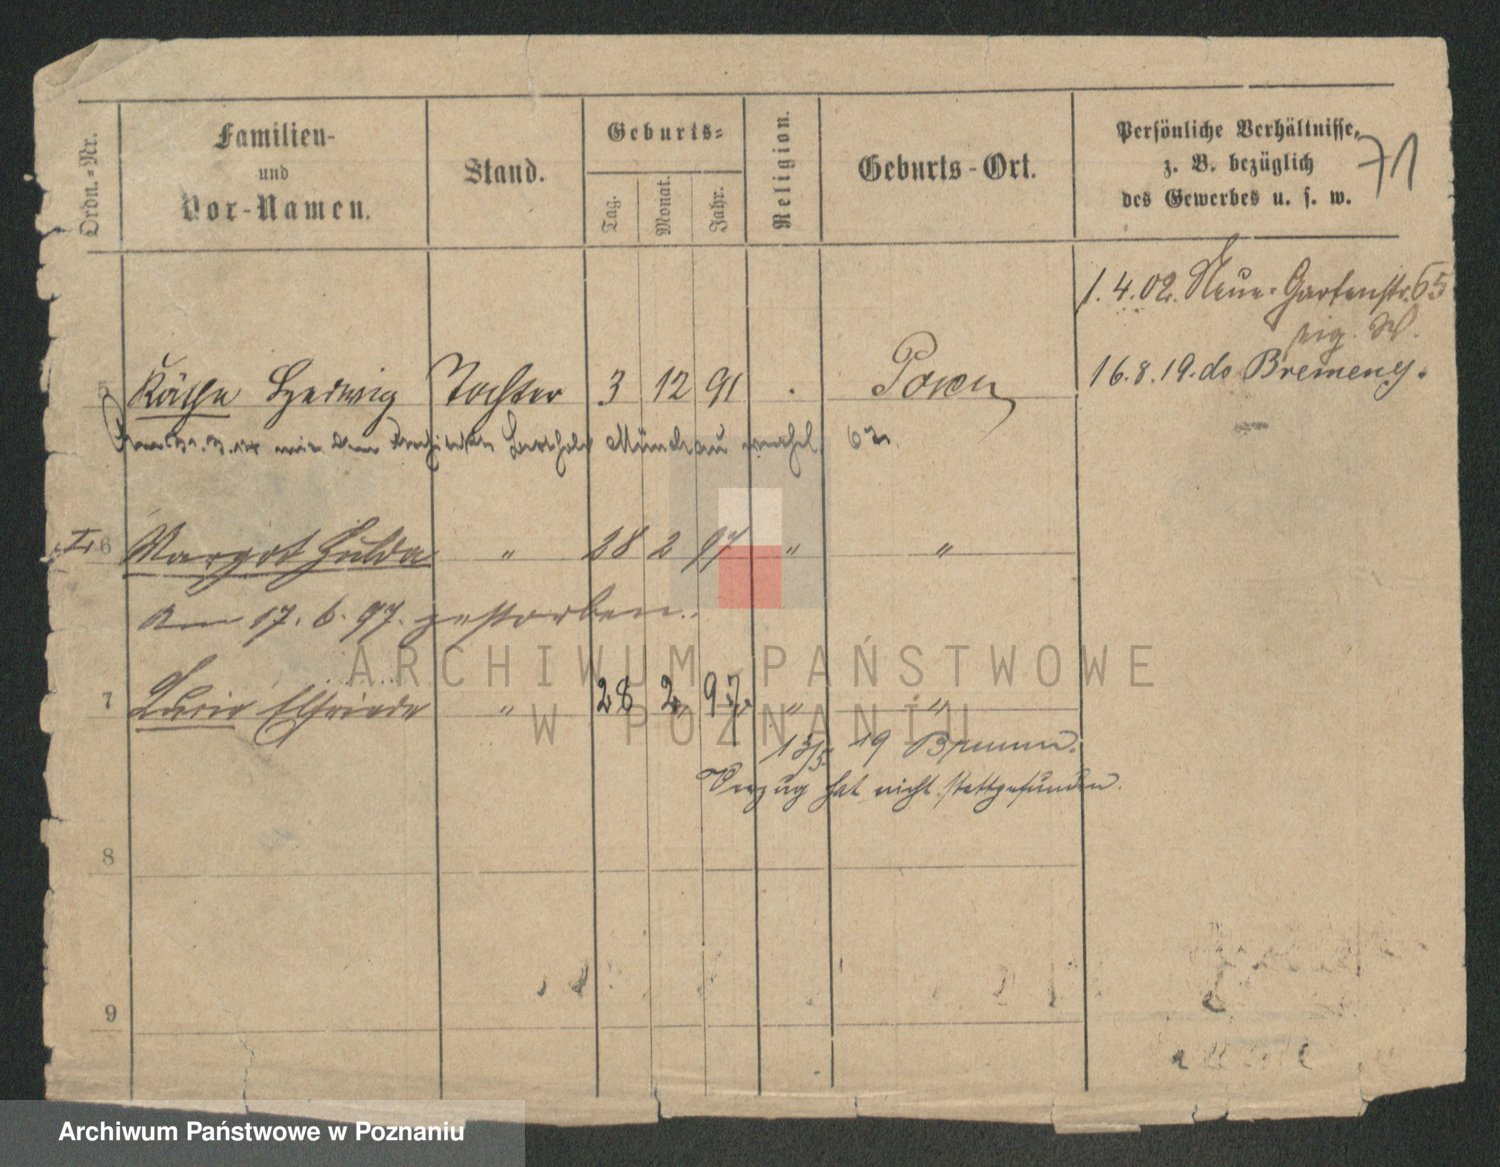 Ordn.-Nr.
Familien-
und
Vor-Namen.
Stand.
Geburts-
Tag.
Monat.
Jahr.
Religion.
Geburts-Ort.
Persönliche Verhältnisse,
z. B. bezüglich
des Gewerbes u. s. w.
71
1.4.02. Neue-Gartenstr. 65
16.8.19. do Bremen
5 Käthe Hedwig Tochter 3 12 91 . Posen
mit dem Architekten Berthold
6 Margot Hulda " 28 2 97 " "
Am 17. 6. 97. gestorben.
7 Lucie Elfriede " 28 2 97. " "
19 Bremen.
hat nicht stattgefunden.
8
9
ARCHIWUM PAŃSTWOWE
W POZNANIU
Archiwum Państwowe w Poznaniu